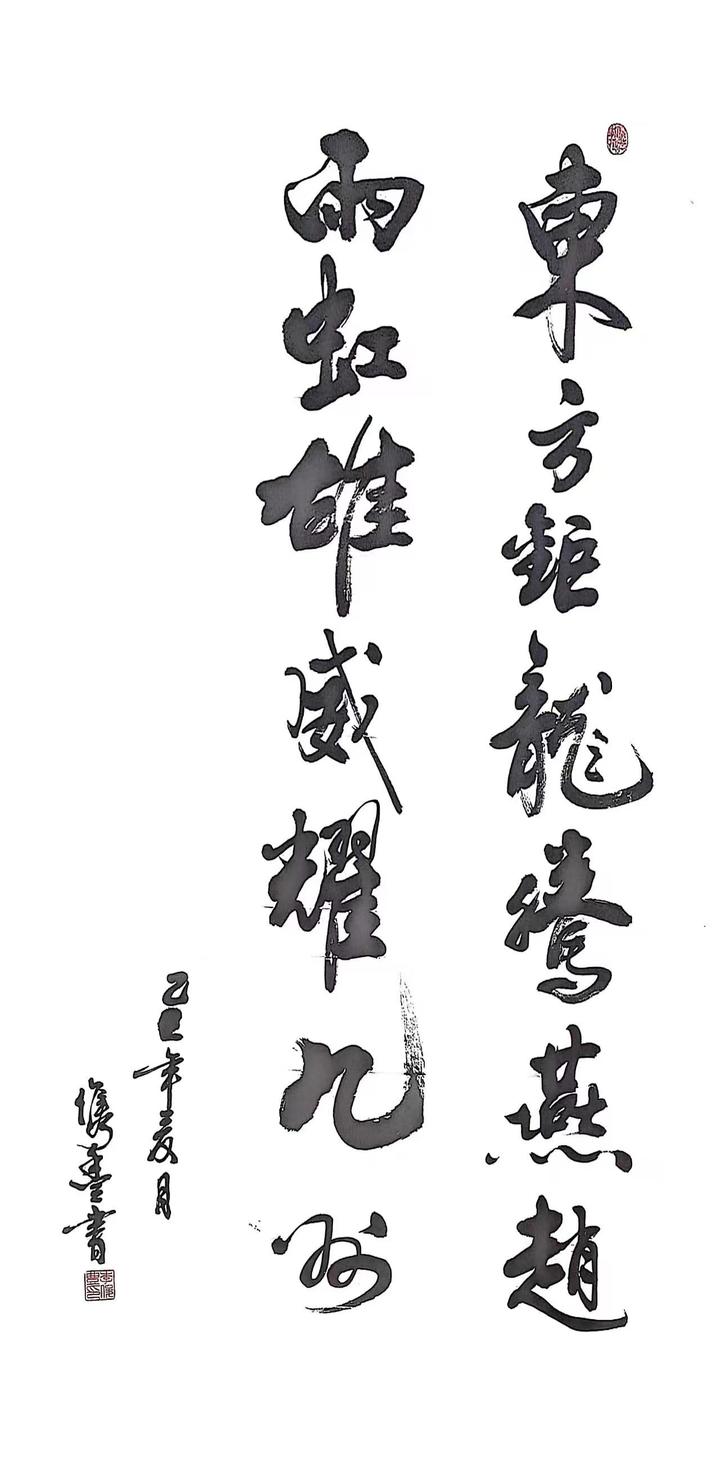 東方鉅龍騰燕趙
雨虹雄威耀九州
乙巳年亥月
書